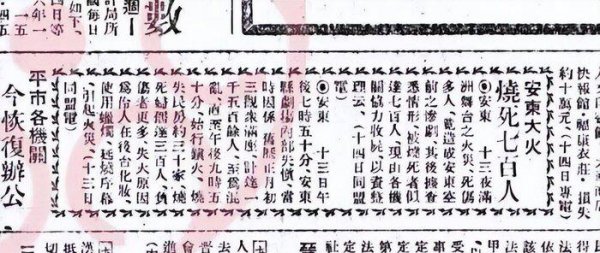 數
週一
計局所
如下、
快報館，福康衣莊，損失
約十萬元，（十四日專電）
安東大火
燒死七百人
◎安東　十三夜滿
洲舞台之火災，死傷
多人，釀造成安東空
前之慘劇，其後據查
悉情形，被燒死者似
達七百人，現由各機
關協力收屍，以資整
理云，（十四日同盟
電）
◎安東　十三日午
後七時五十分，安東
縣劇場內部失慎，當
時因係舊曆正月初
三觀衆滿座，計達一
千五百餘人，至爲混
亂，直至午後九時五
十分，始行鎮火，燒
失民房約三十家，燒
死婦孺達三百人，負
傷者更多，失火原因
爲伶人在後台化妝，
使用蠟燭，延燒序幕
，引起火災（十三日
同盟電）
平市各機關
今恢復辦公